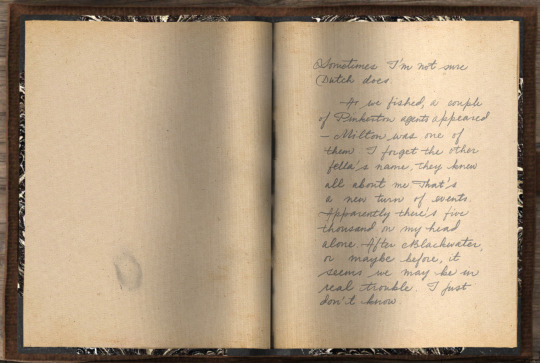 Sometimes I'm not sure
Dutch does.
As we fished, a couple
of Pinkerton agents appeared
– Milton, was one of
them. I forget the other
fella's name, they knew
all about me. That's
a new turn of events.
Apparently there's five
thousand on my head
alone. After Blackwater,
or maybe before, it
seems we may be in
real trouble. I just
don't know.